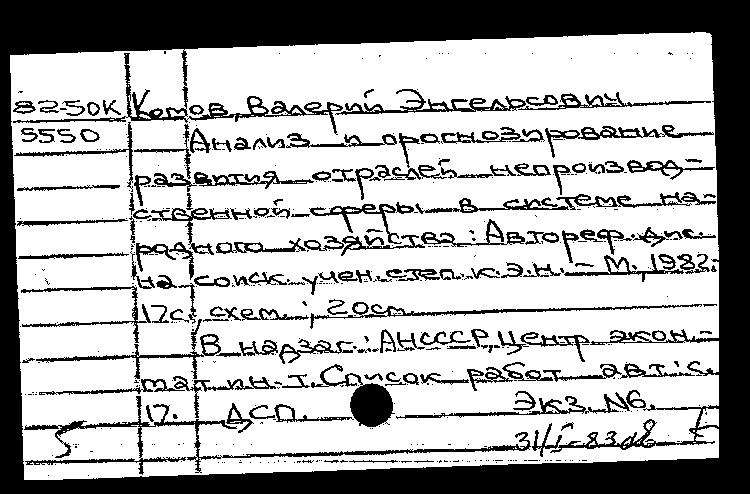 82-50K Котов, Валерий Энгельсович
5550 Анализ и прогнозирование
развития отраслей непроизвод-
ственной сферы в системе на-
родного хозяйства : Автореф. дис.
на соиск. учен. степ. к.э.н. – М., 1982.
17с., схем. ; 20см.
В надзаг.: АНСССР, Центр. экон.-
мат. ин-т. Список работ авт.: с.
17. ДСП. Экз. №6.
31/I-83